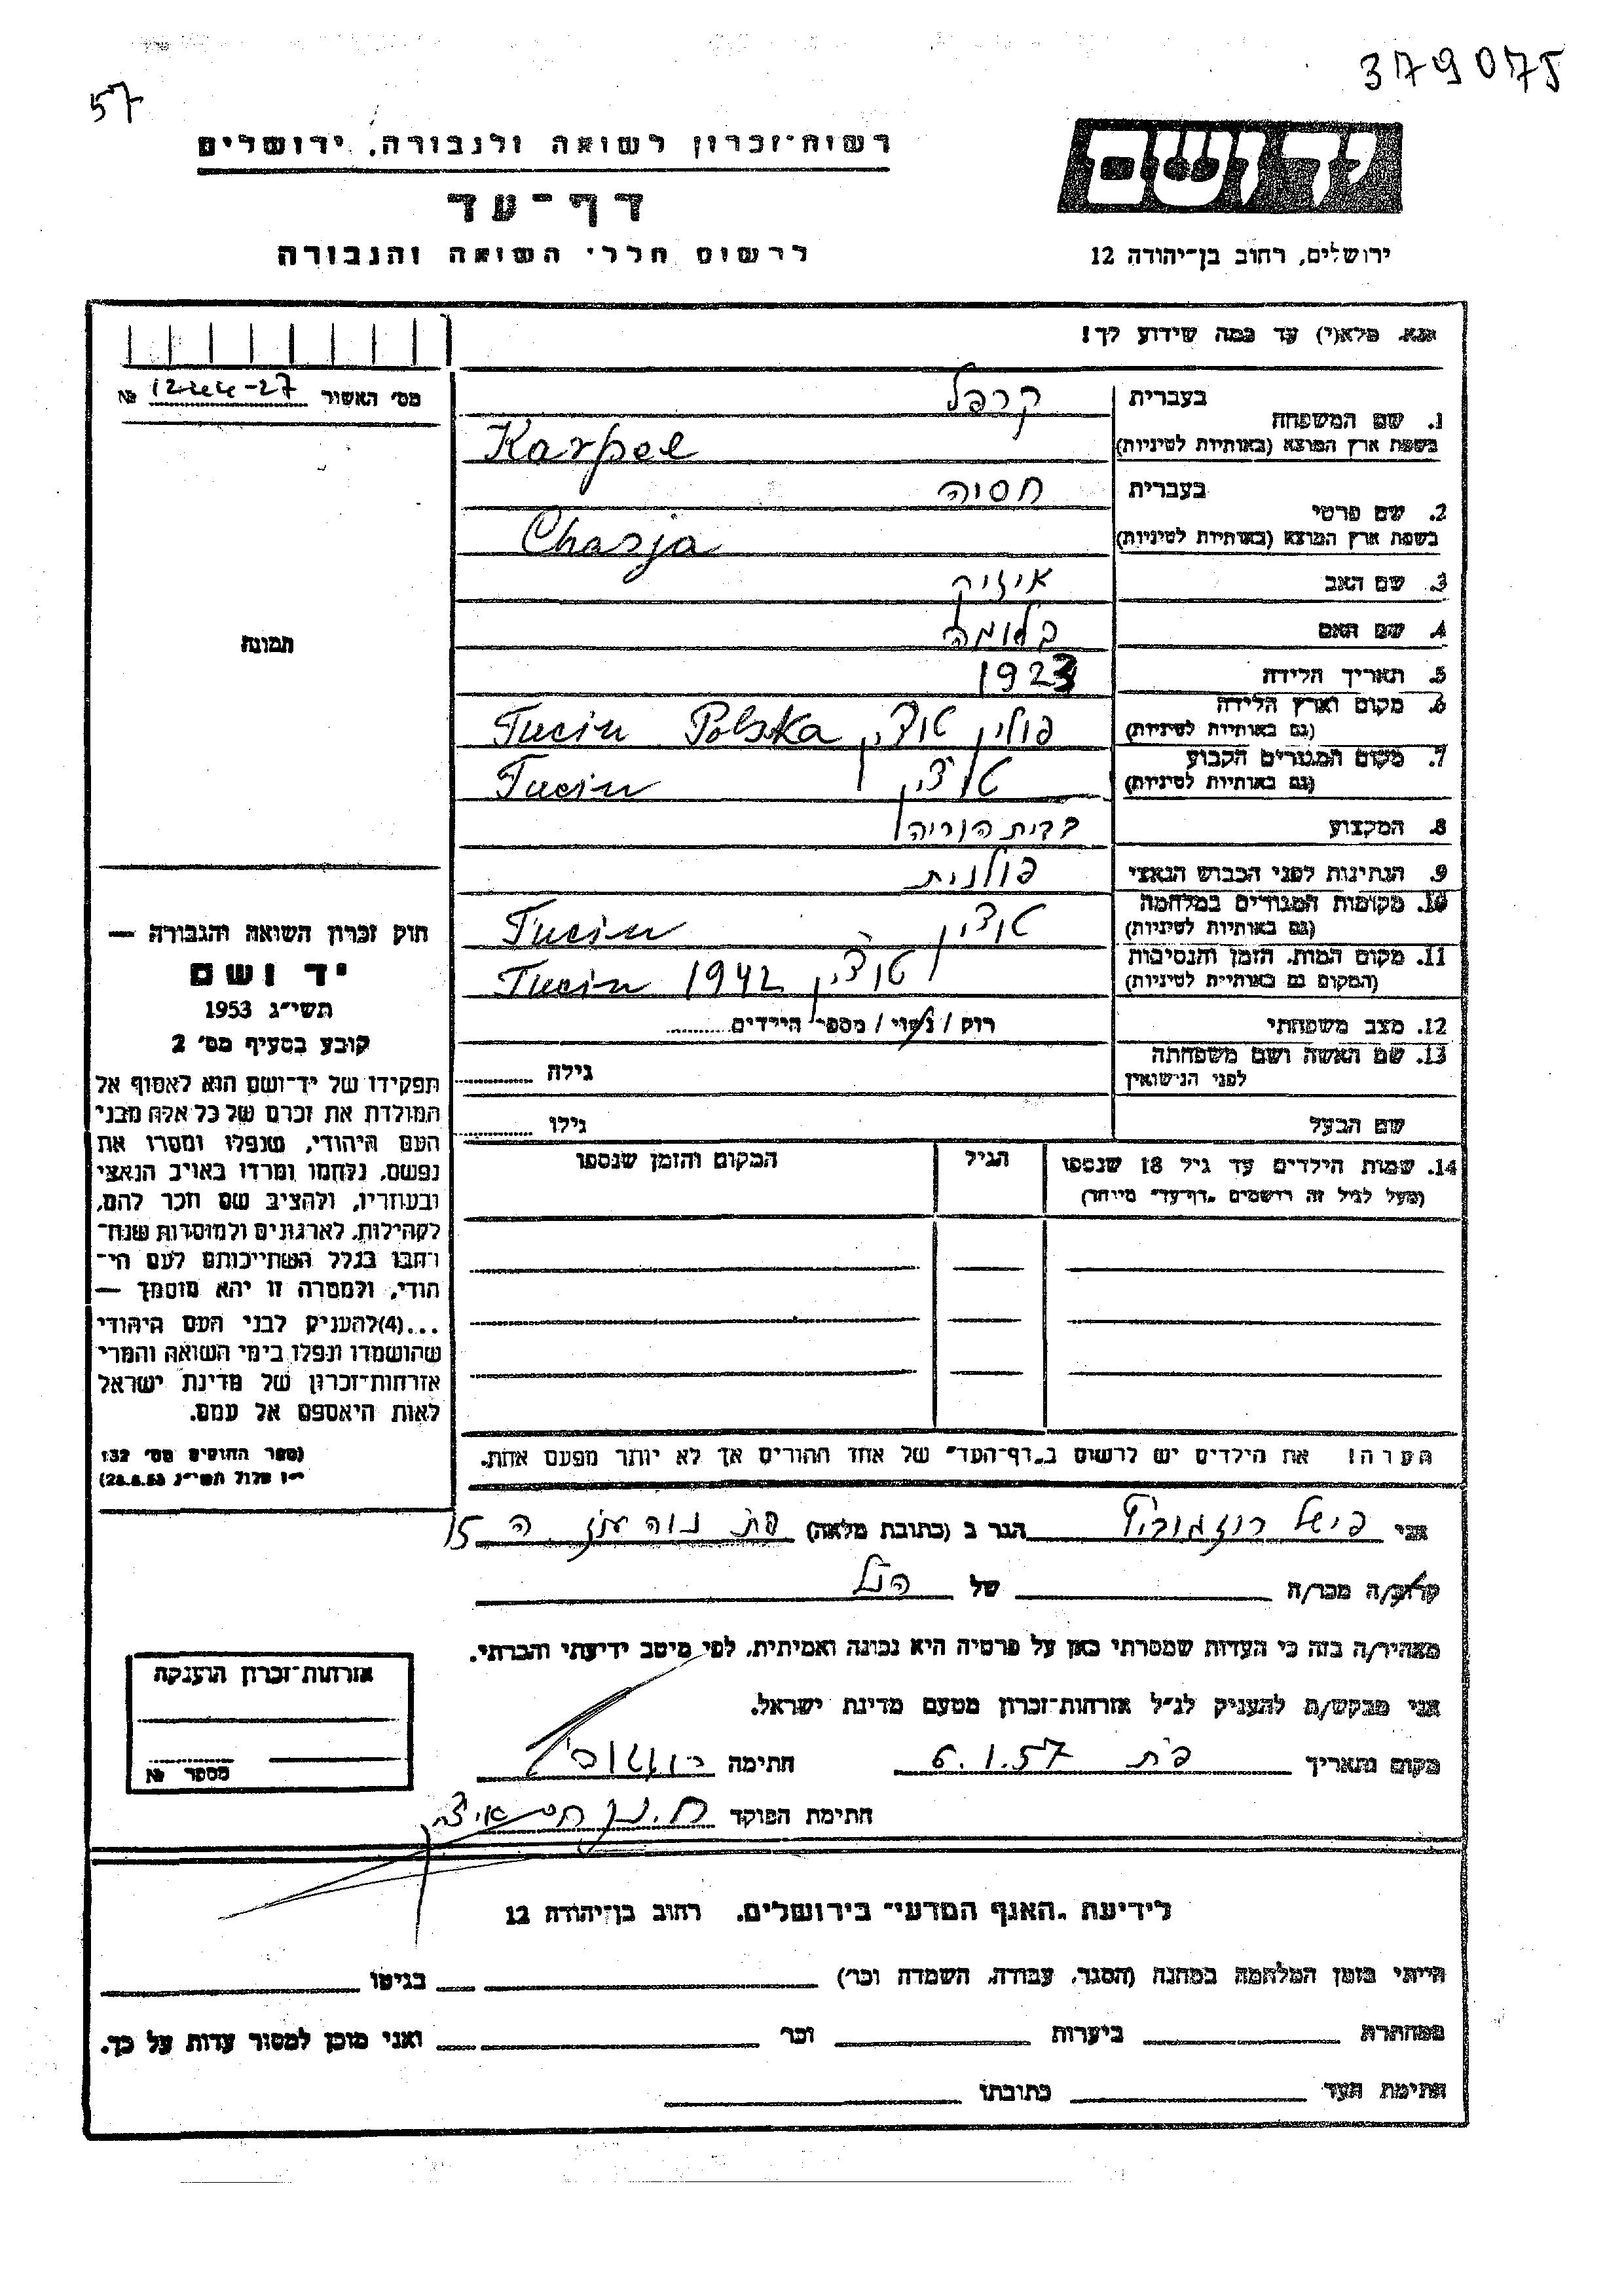 379075
57
יד ושם
ירושלים, רחוב בן־יהודה 12
רשות־זכרון לשואה ולגבורה, ירושלים
דף־עד
לרשום חללי השואה והגבורה
נא מלא(י) עד כמה שידוע לך!
מס׳ האשור 1244-27 №
1. שם המשפחה
בעברית קרפל
בשפת ארץ המוצא (באותיות לטיניות) Karpel
2. שם פרטי
בעברית חסיה
בשפת ארץ המוצא (באותיות לטיניות) Chasja
3. שם האב איזיק
4. שם האם בלומה
5. תאריך הלידה 1923
6. מקום וארץ הלידה
(גם באותיות לטיניות) פולין טוצ׳ין Tucin Polska
7. מקום המגורים הקבוע
(גם באותיות לטיניות) טוצ׳ין Tucin
8. המקצוע בבית הוריה
9. הנתינות לפני הכבוש הנאצי פולנית
10. מקומות המגורים במלחמה
(גם באותיות לטיניות) טוצ׳ין Tucin
11. מקום המות, הזמן והנסיבות
(המקום גם באותיות לטיניות) טוצ׳ין Tucin 1942
12. מצב משפחתי רוק / נשוי / מספר הילדים
13. שם האשה ושם משפחתה
לפני הנישואין גילה
שם הבעל גילו
14. שמות הילדים עד גיל 18 שנספו הגיל המקום והזמן שנספו
(מעל לגיל זה רושמים „דף־עד״ מיוחד)
הערה! את הילדים יש לרשום ב„דף־העד״ של אחד ההורים אך לא יותר מפעם אחת.
תמונה
חוק זכרון השואה והגבורה —
יד ושם
תשי״ג 1953
קובע בסעיף מס׳ 2
תפקידו של יד־ושם הוא לאסוף אל
המולדת את זכרם של כל אלה מבני
העם היהודי, שנפלו ומסרו את
נפשם, נלחמו ומרדו באויב הנאצי
ובעוזריו, ולהציב שם וזכר להם,
לקהילות, לארגונים ולמוסדות שנח־
רבו בגלל השתייכותם לעם הי־
הודי, ולמטרה זו יהא מוסמך —
...(4)להעניק לבני העם היהודי
שהושמדו ונפלו בימי השואה והמרי
אזרחות־זכרון של מדינת ישראל
לאות היאספם אל עמם.
(ספר החוקים מס׳ 132
י״ז אלול תשי״ג 28.8.53)
אני פישל הגר ב (כתובת מלאה) פת נוה עוז ה 15
קרוב/ה מכר/ה של הנ״ל
מצהיר/ה בזה כי העדות שמסרתי כאן על פרטיה היא נכונה ואמיתית, לפי מיטב ידיעתי והכרתי.
אני מבקש/ת להעניק לנ״ל אזרחות־זכרון מטעם מדינת ישראל.
מקום ותאריך פ״ת 6.1.57 חתימה
חתימת הפוקד
אזרחות־זכרון הוענקה
מספר №
לידיעת „האגף המדעי״ בירושלים, רחוב בן־יהודה 12
הייתי בזמן המלחמה במחנה (הסגר, עבודה, השמדה וכו׳) בגיטו
במחתרת ביערות וכו׳ ואני מוכן למסור עדות על כך.
חתימת העד כתובתו